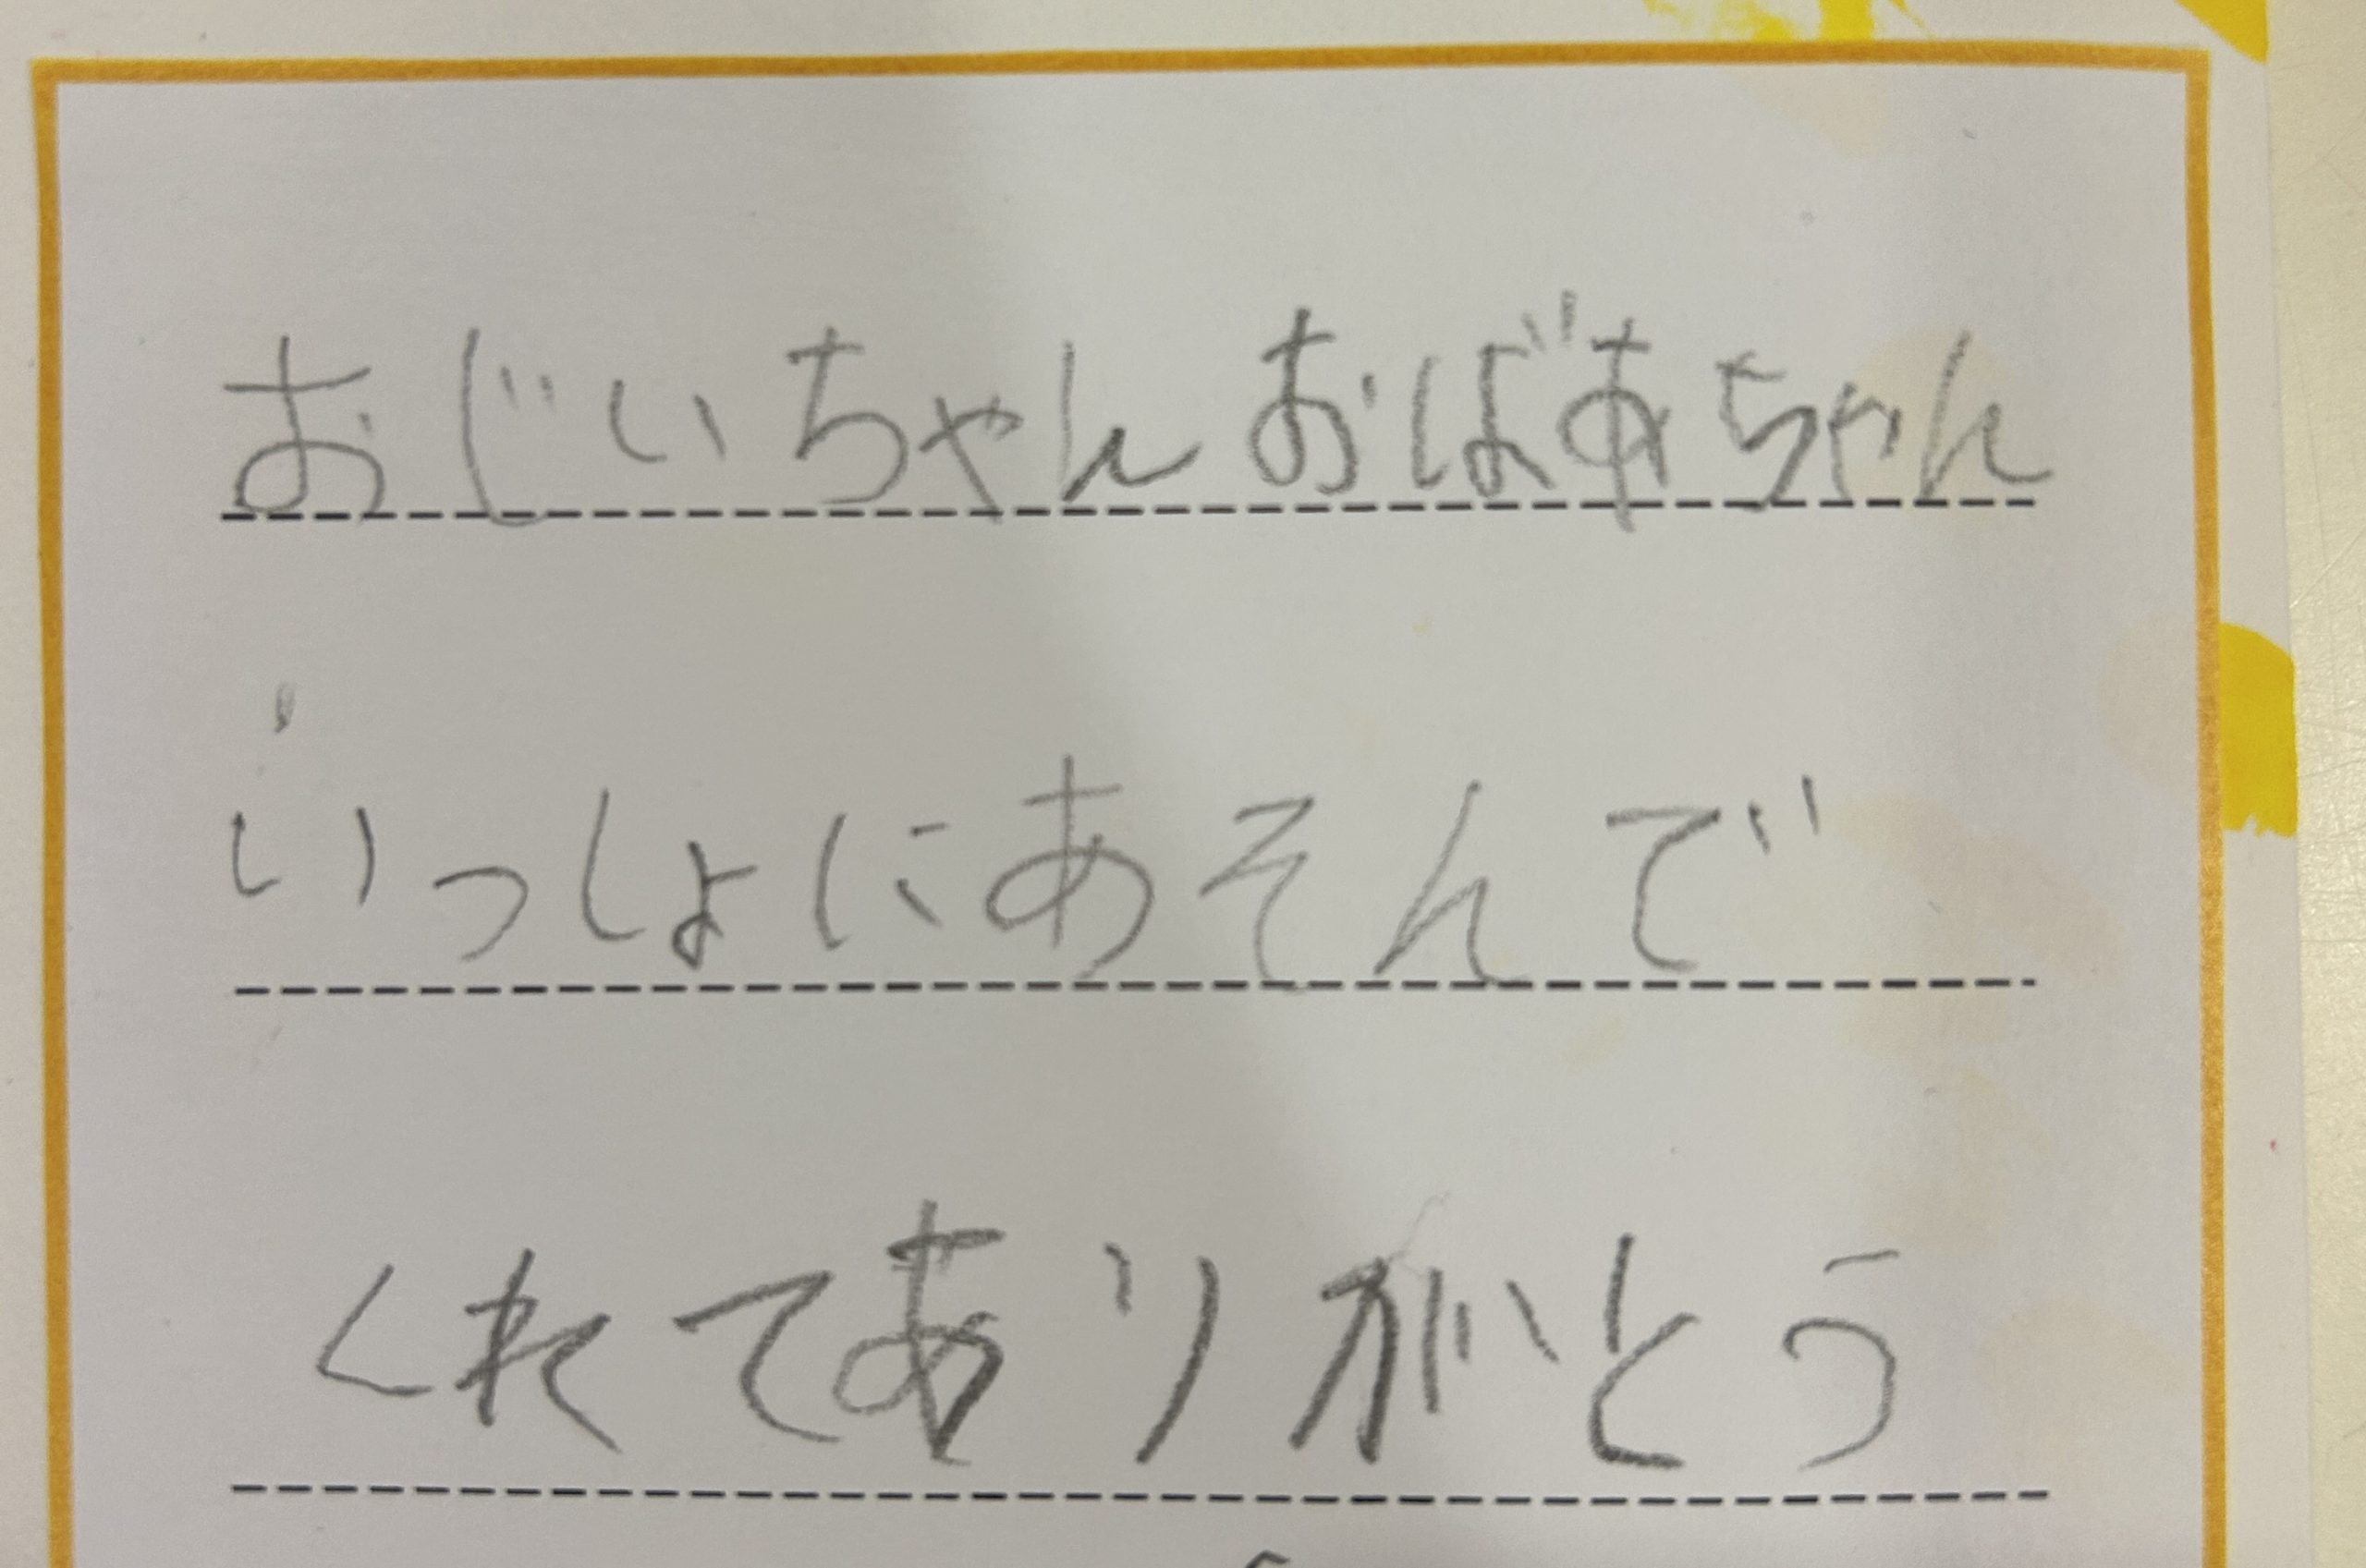 おじいちゃんおばあちゃん
いっしょにあそんで
くれてありがとう